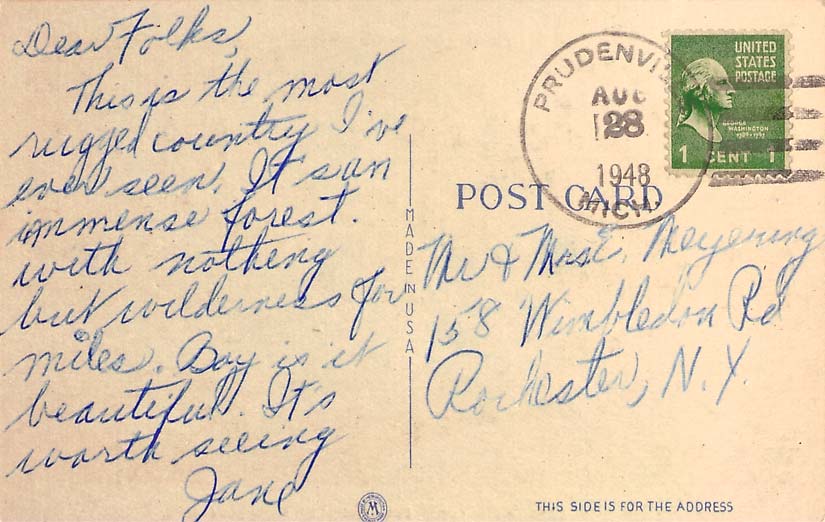 Dear Folks,
This is the most
rugged country I've
ever seen. It's an
immense forest.
with nothing
but wilderness for
miles. Boy is it
beautiful. It's
worth seeing
Jane
MADE IN USA
POST CARD
PRUDENVI
AUG
28
1948
MICH.
UNITED
STATES
POSTAGE
GEORGE
WASHINGTON
1 CENT 1
Mr & Mrs E. Meyering
158 Wimbledon Rd
Rochester, N.Y.
W
THIS SIDE IS FOR THE ADDRESS